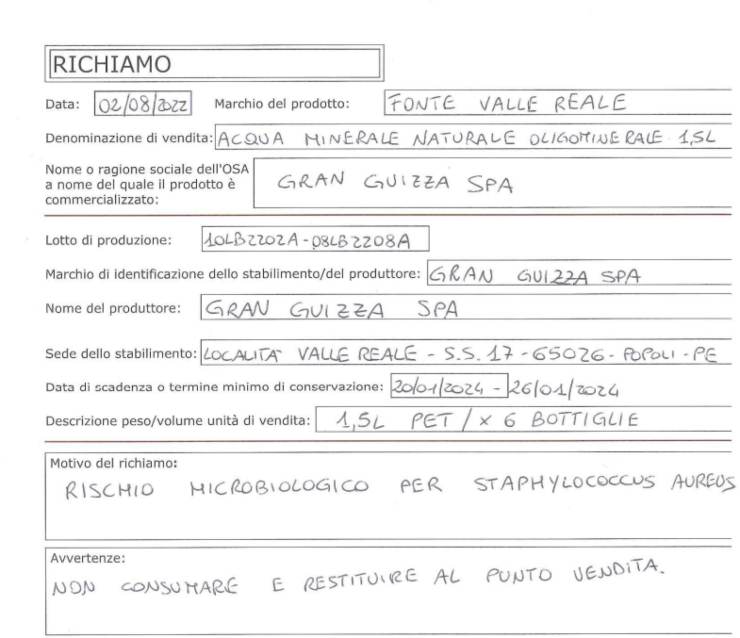 RICHIAMO
Data: 02/08/2022 Marchio del prodotto: FONTE VALLE REALE
Denominazione di vendita: ACQUA MINERALE NATURALE OLIGOMINERALE 1,5L
Nome o ragione sociale dell'OSA
a nome del quale il prodotto è
commercializzato:
GRAN GUIZZA SPA
Lotto di produzione: 10LB2202A-08LB2208A
Marchio di identificazione dello stabilimento/del produttore: GRAN GUIZZA SPA
Nome del produttore: GRAN GUIZZA SPA
Sede dello stabilimento: LOCALITA' VALLE REALE - S.S. 17 - 65026 - POPOLI - PE
Data di scadenza o termine minimo di conservazione: 20/01/2024 - 26/01/2024
Descrizione peso/volume unità di vendita: 1,5L PET / x 6 BOTTIGLIE
Motivo del richiamo:
RISCHIO MICROBIOLOGICO PER STAPHYLOCOCCUS AUREUS
Avvertenze:
NON CONSUMARE E RESTITUIRE AL PUNTO VENDITA.